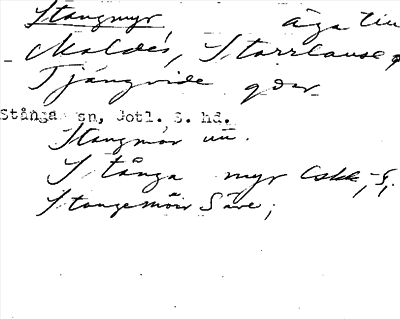 Stangmyr, äga till
Maldes, Starrlause,
Tjängvide gdr.
Stånga sn, Gotl. S. hd.
Stangmor
Stånga myr
Stangemöir Säve;